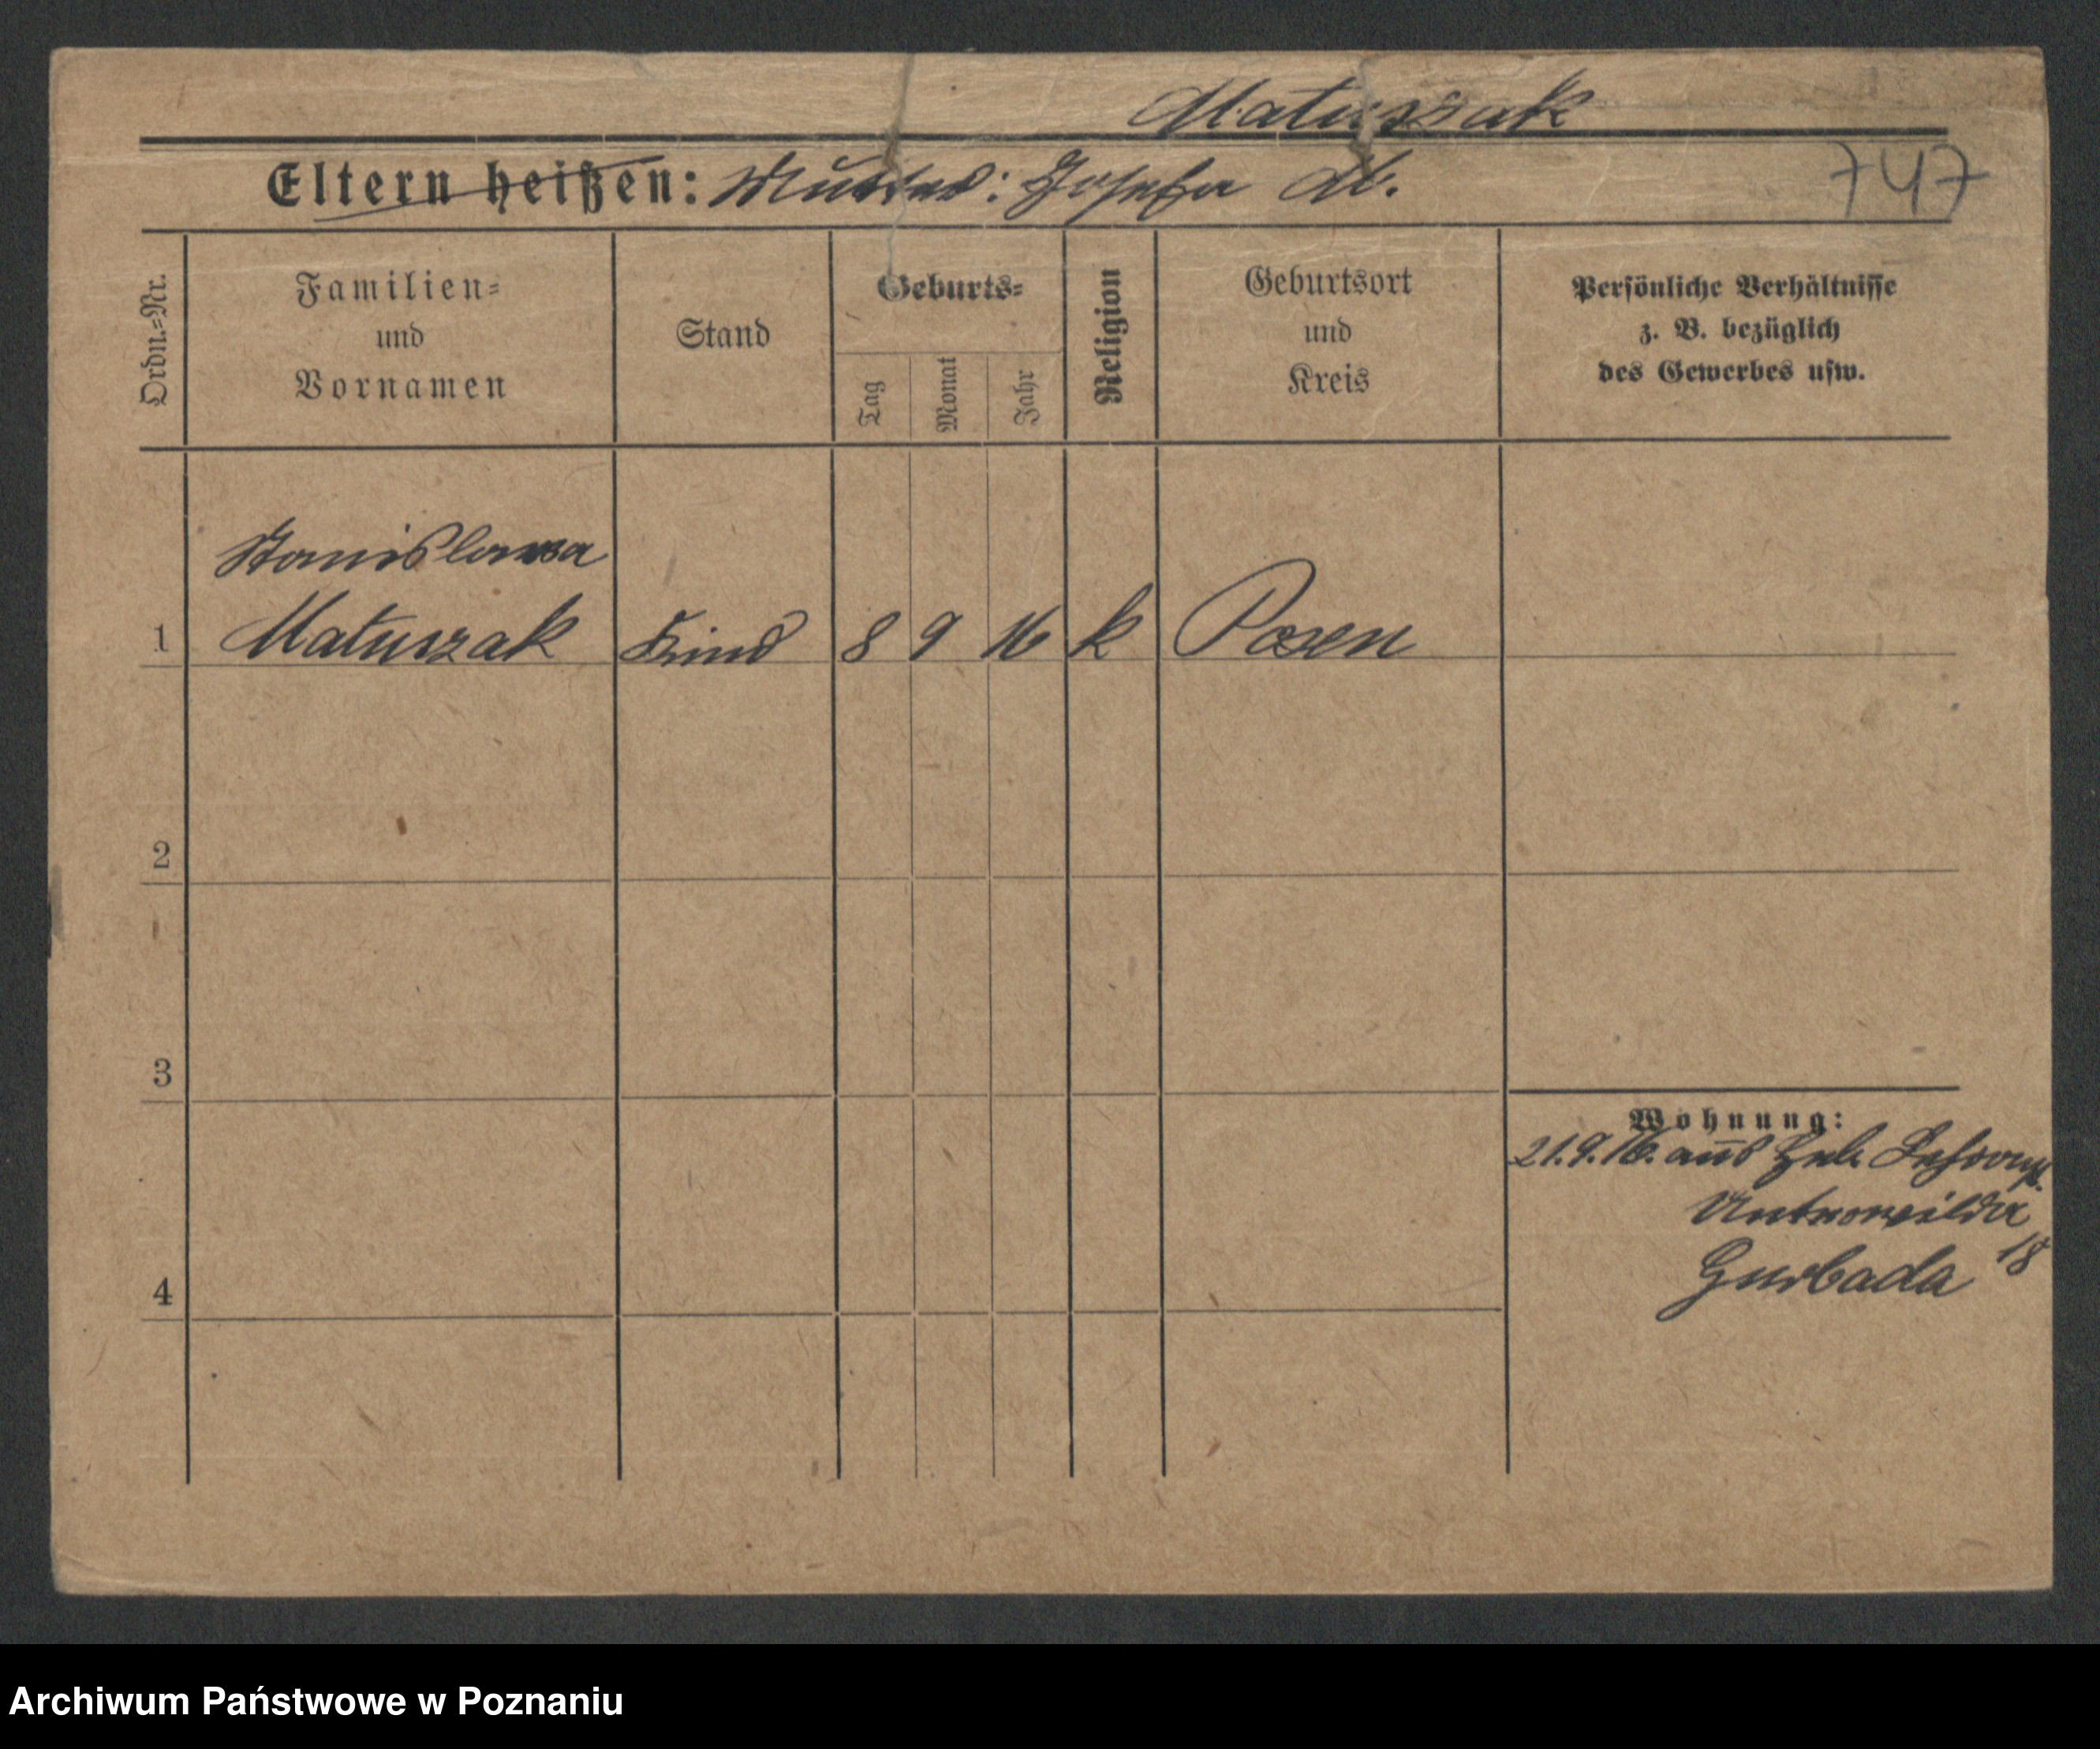 Matuszak
Eltern heißen: Mutter: Josefa M.
747
Ordn.-Nr.
Familien-
und
Vornamen
Stand
Geburts-
Tag
Monat
Jahr
Religion
Geburtsort
und
Kreis
Persönliche Verhältnisse
z. B. bezüglich
des Gewerbes usw.
Stanislawa
1 Matuszak Kind 8 9 16 k Posen
2
3
4
Wohnung:
21.9.16. aus Heb.
Unterwilda
18
Gurbada
Archiwum Państwowe w Poznaniu